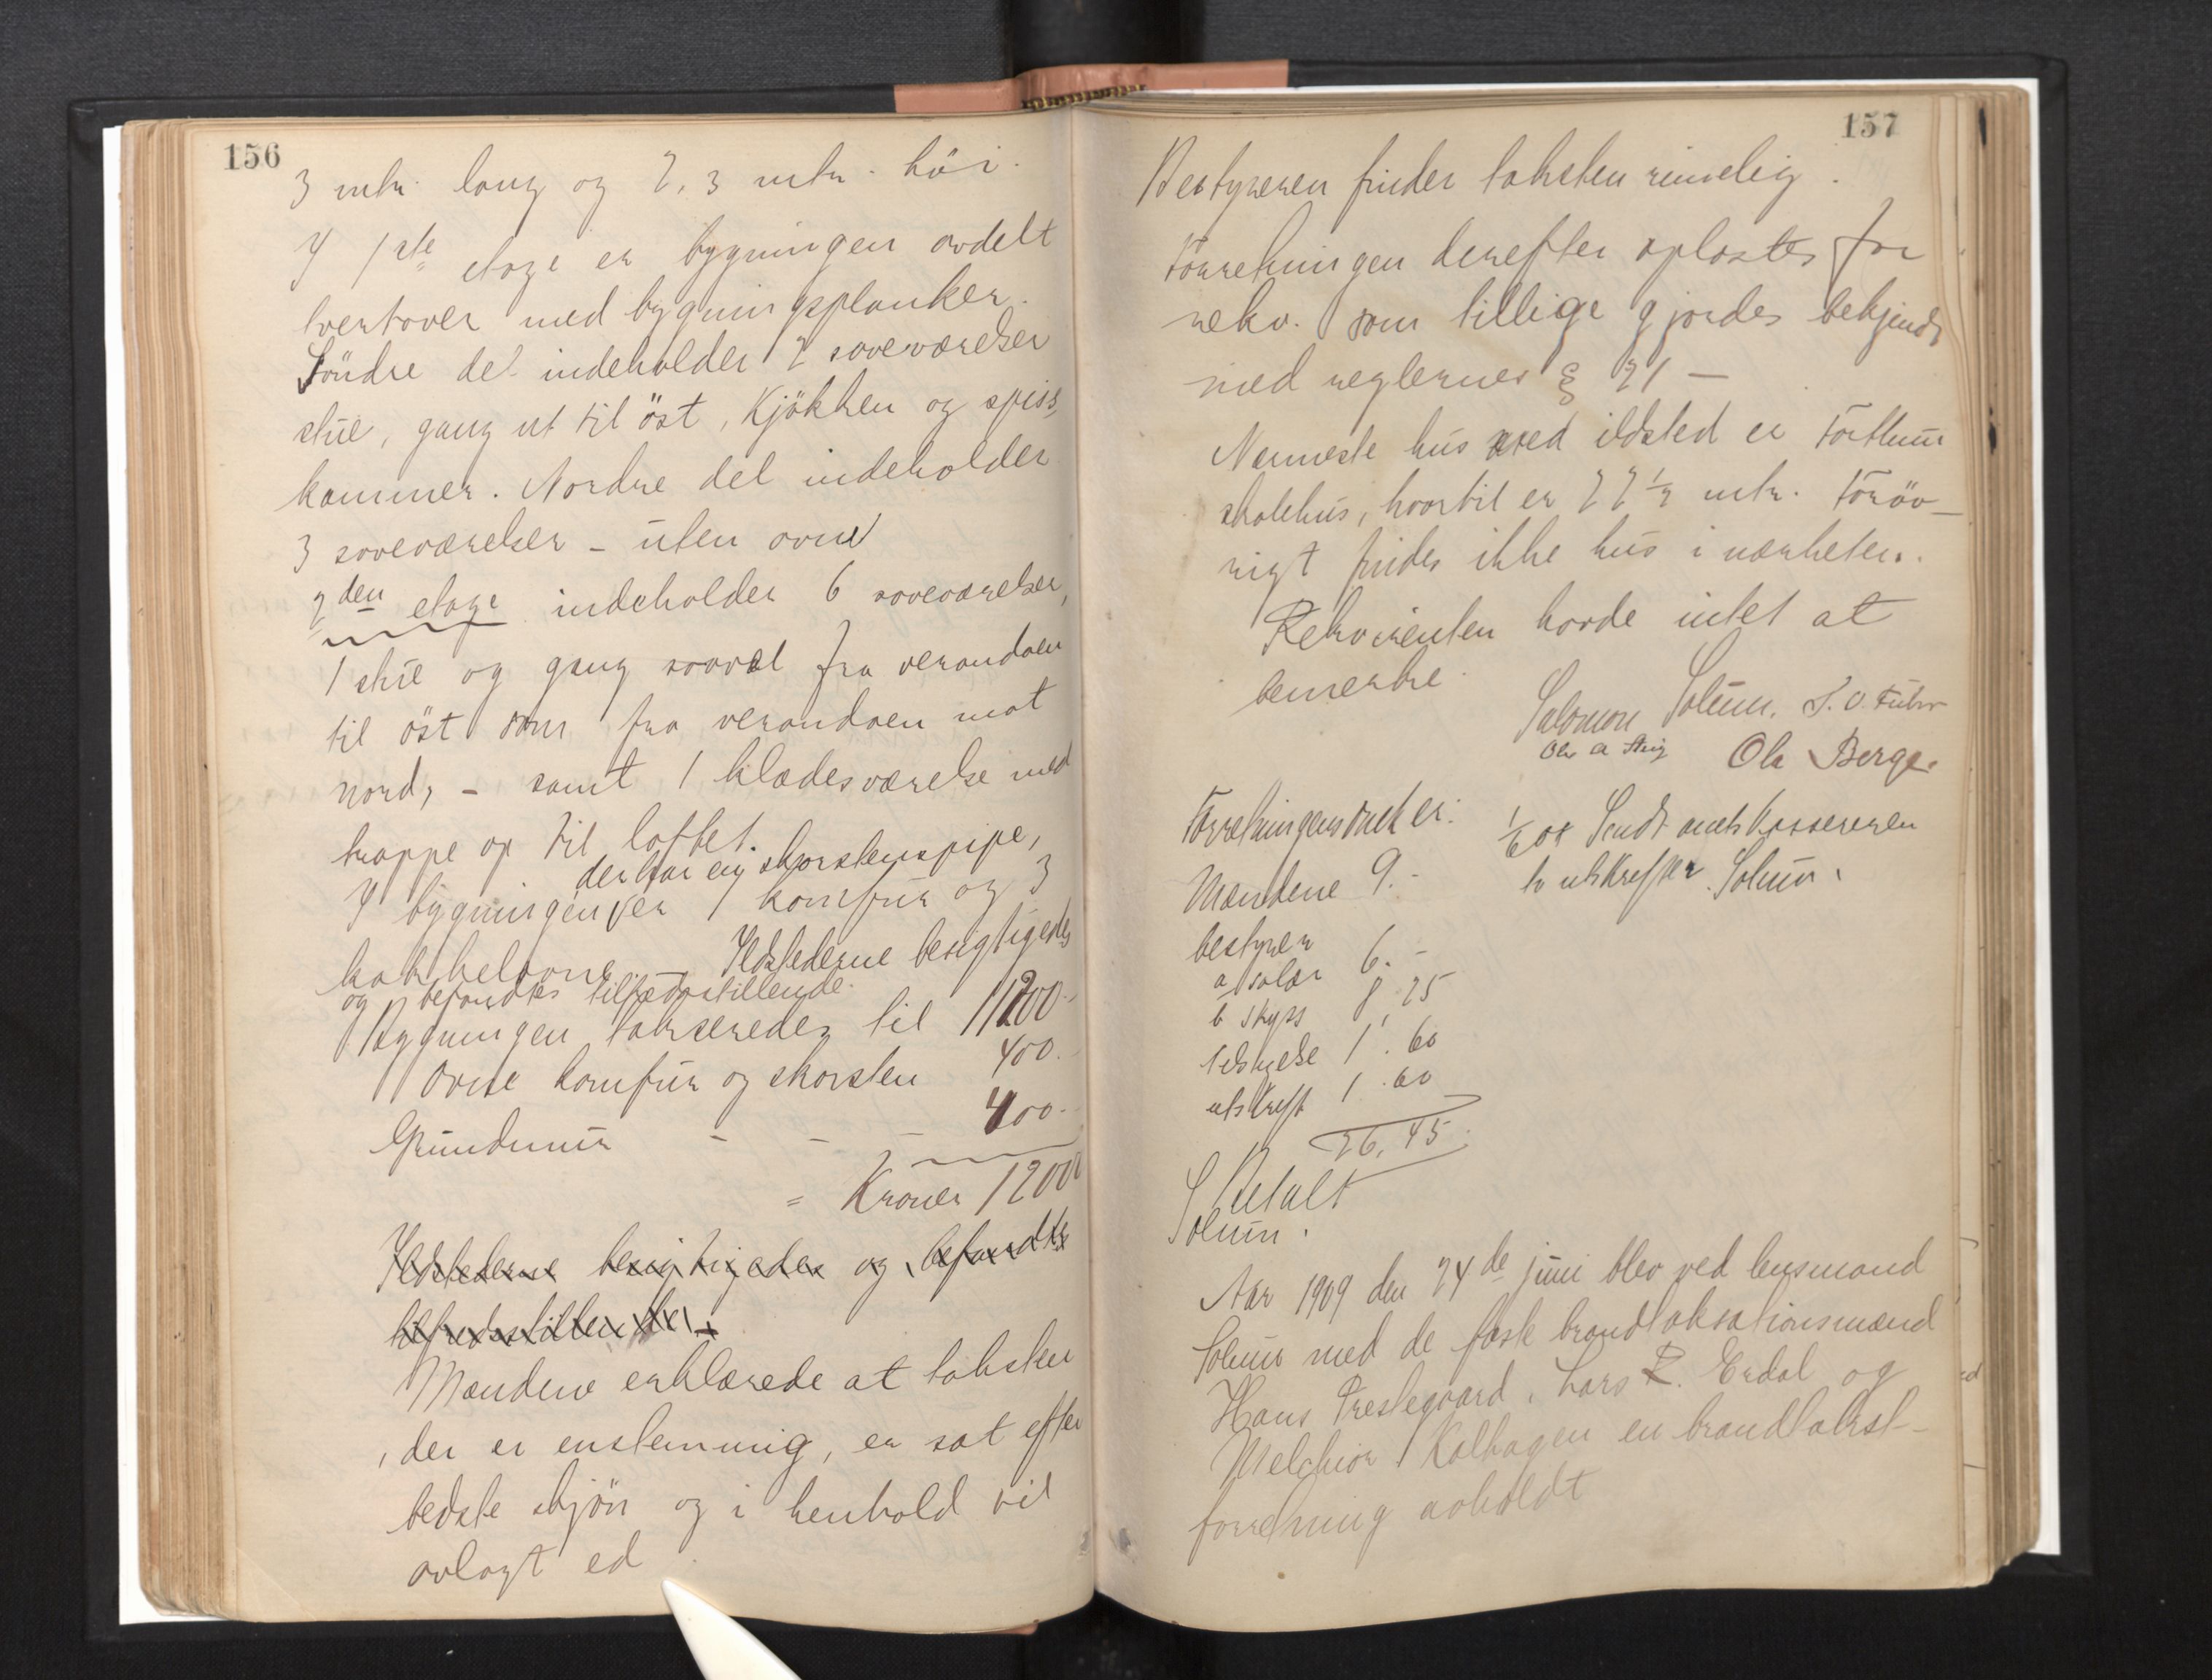 156
3 mtr. lang og 2,3 mtr. høi.
I 1ste etage er bygningen avdelt
tvertover med bygningsplanker.
Söndre del indeholder 2 soveværelser
stue, gang ut til öst, Kjökken og spiss
kammer. Nordre del indeholder
3 soveværelser - uten ovne
2den etage indeholder 6 soveværelser,
1 stue og gang saavel fra verandaen
til öst som fra verandaen mot
nord, - samt 1 klædesværelse med
trappe op til loftet.
der har en skorstenspipe,
I bygningen er 1 komfur og 3
kakkelovne. Ildstederne besigtigedes
og befandtes tilfredsstillende.
Bygningen takseredes til 11200.-
Ovne komfur og skorsten 400.-
Grundmur - - - 400.-
= Kroner 12000
Ildstederne besigtigedes og befandtes
tilfredsstillende.
Mændene erklærede at taksten
, der er enstemmig, er sat efter
bedste skjön og i henhold til
avlagt ed
157
Bestyreren finder taksten rimelig.
Forretningen derefter oplæstes for
rekv. som tillige gjordes bekjendt
med reglernes § 21 -
Nærmeste hus med ildsted er Forthun
skolehus, hvortil er 22½ mtr. Forøv-
rigt findes ikke hus i nærheten.
Rekvirenten havde intet at
bemerke.
Salomon Solum. S. O.
Ole A Steig Ola Berge.
Forretningens er:
Mændene 9.-
bestyrer
a salær 6.-
b skyss 8.25
tilsigelse 1.60
utskrift 1.60
26,45
Betalt
Solum.
1/6 09 Sendt amtskassereren
to utskrifter. Solum.
Aar 1909 den 24de juni blev ved lensmand
Solum med de faste brandtaksationsmænd
Hans Prestegaard, Lars R. Erdal og
Melchior Kalhagen en brandtakst-
forretning avholdt